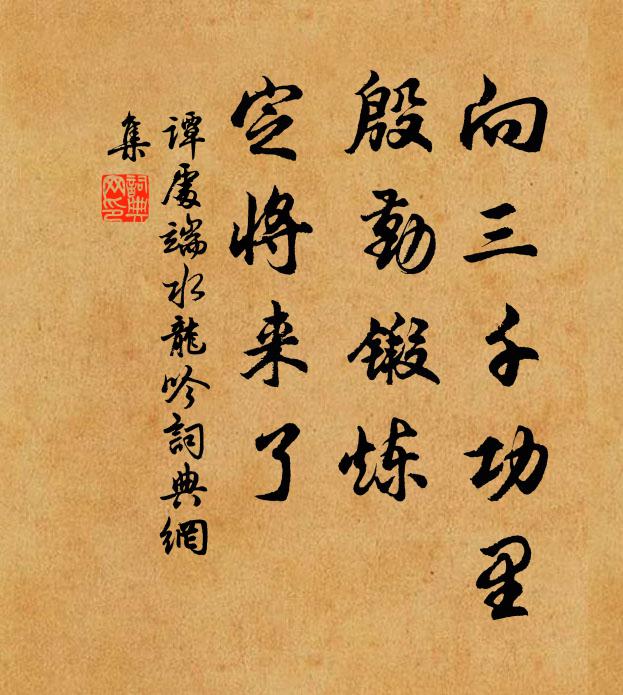 向三千功里
殷勤锻炼
定将来了
谭处端水龍吟詞典網
集
詞典
网印